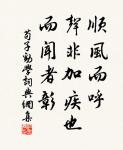 順風而呼
聲非加疾也
而聞者彰
荀子勸學詞典網集